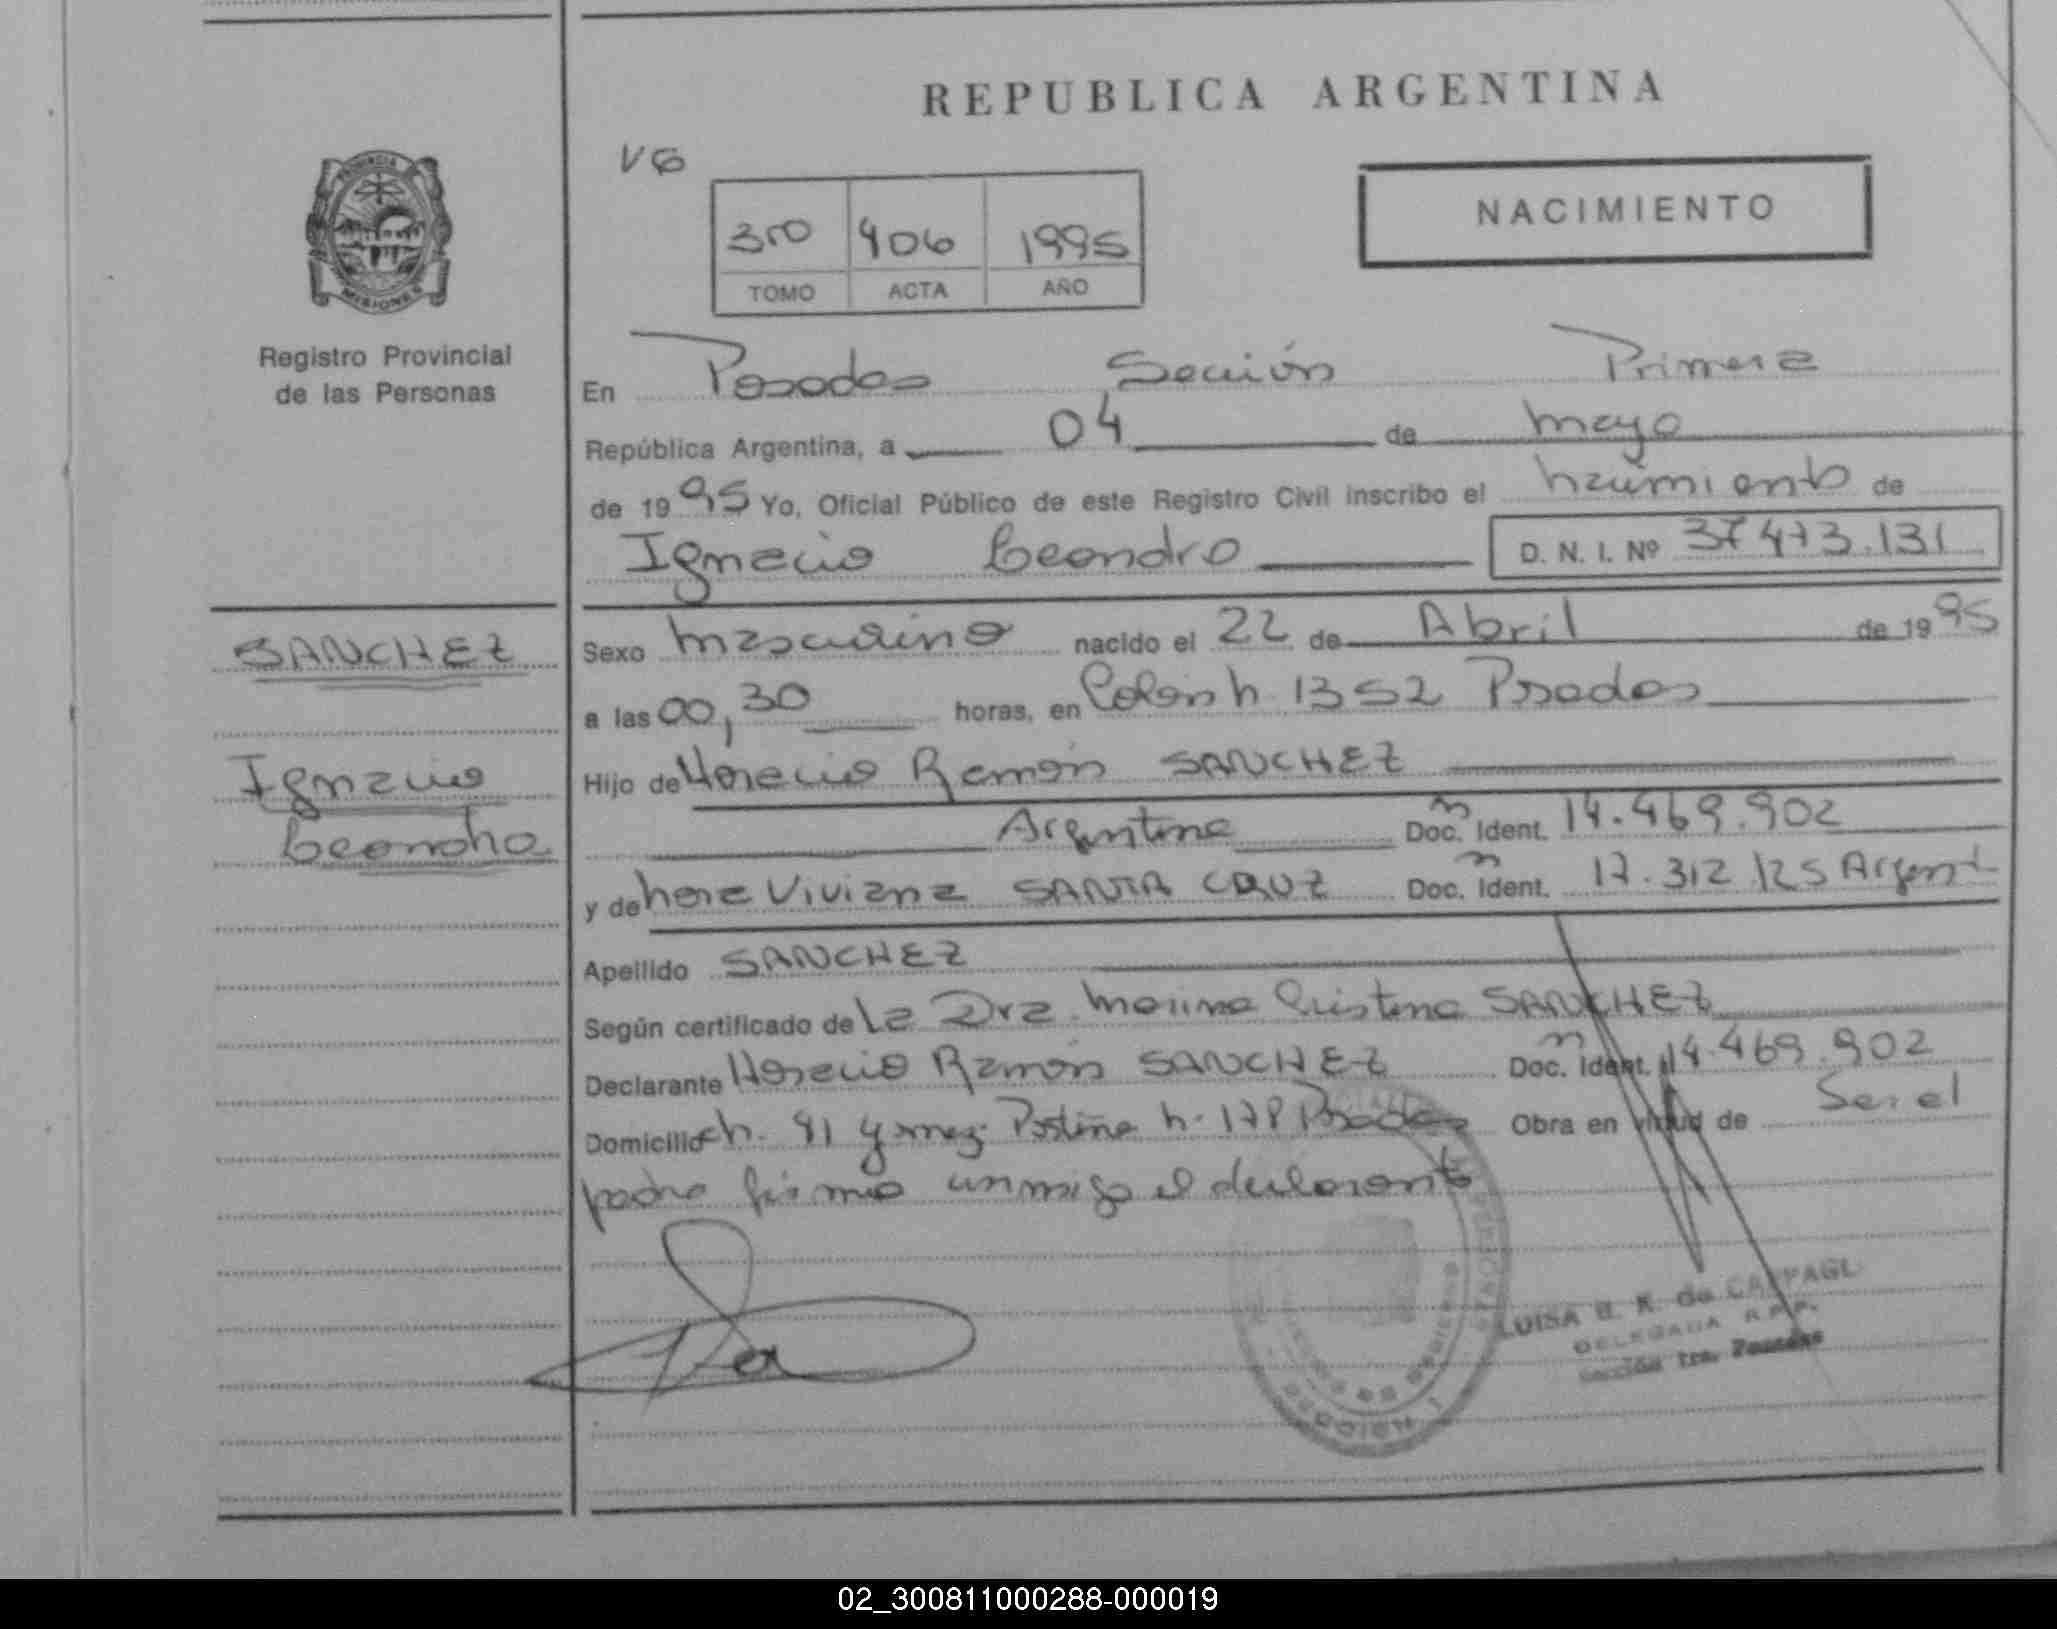 REPUBLICA ARGENTINA
PROVINCIA
MISIONES
Registro Provincial
de las Personas
VG
3ro 406 1995
TOMO ACTA AÑO
NACIMIENTO
En Posadas Sección Primera
República Argentina, a 04 de mayo
de 1995 Yo, Oficial Público de este Registro Civil inscribo el nacimiento de
Ignacio Leandro D. N. I. Nº 37473.131
SANCHEZ
Ignacio
Leandro
Sexo masculino nacido el 22 de Abril de 1995
a las 00,30 horas, en Colón n. 1352 Posadas
Hijo de Horacio Ramón SANCHEZ
Argentino Doc. Ident. 14.469.902
y de Nora Viviana SANTA CRUZ Doc. Ident. 17.312.125 Argent
Apellido SANCHEZ
Según certificado de la Dra. Cristina SANCHEZ
Declarante Horacio Ramón SANCHEZ Doc. Ident. 14.469.902
Domicilio ch. n. Posadas Obra en virtud de Ser el
padre firma conmigo el declarante
LUISA B. K. de
DELEGADA R.P.P.
Sección 1ra. Posadas
SECCION 1
02_300811000288-000019